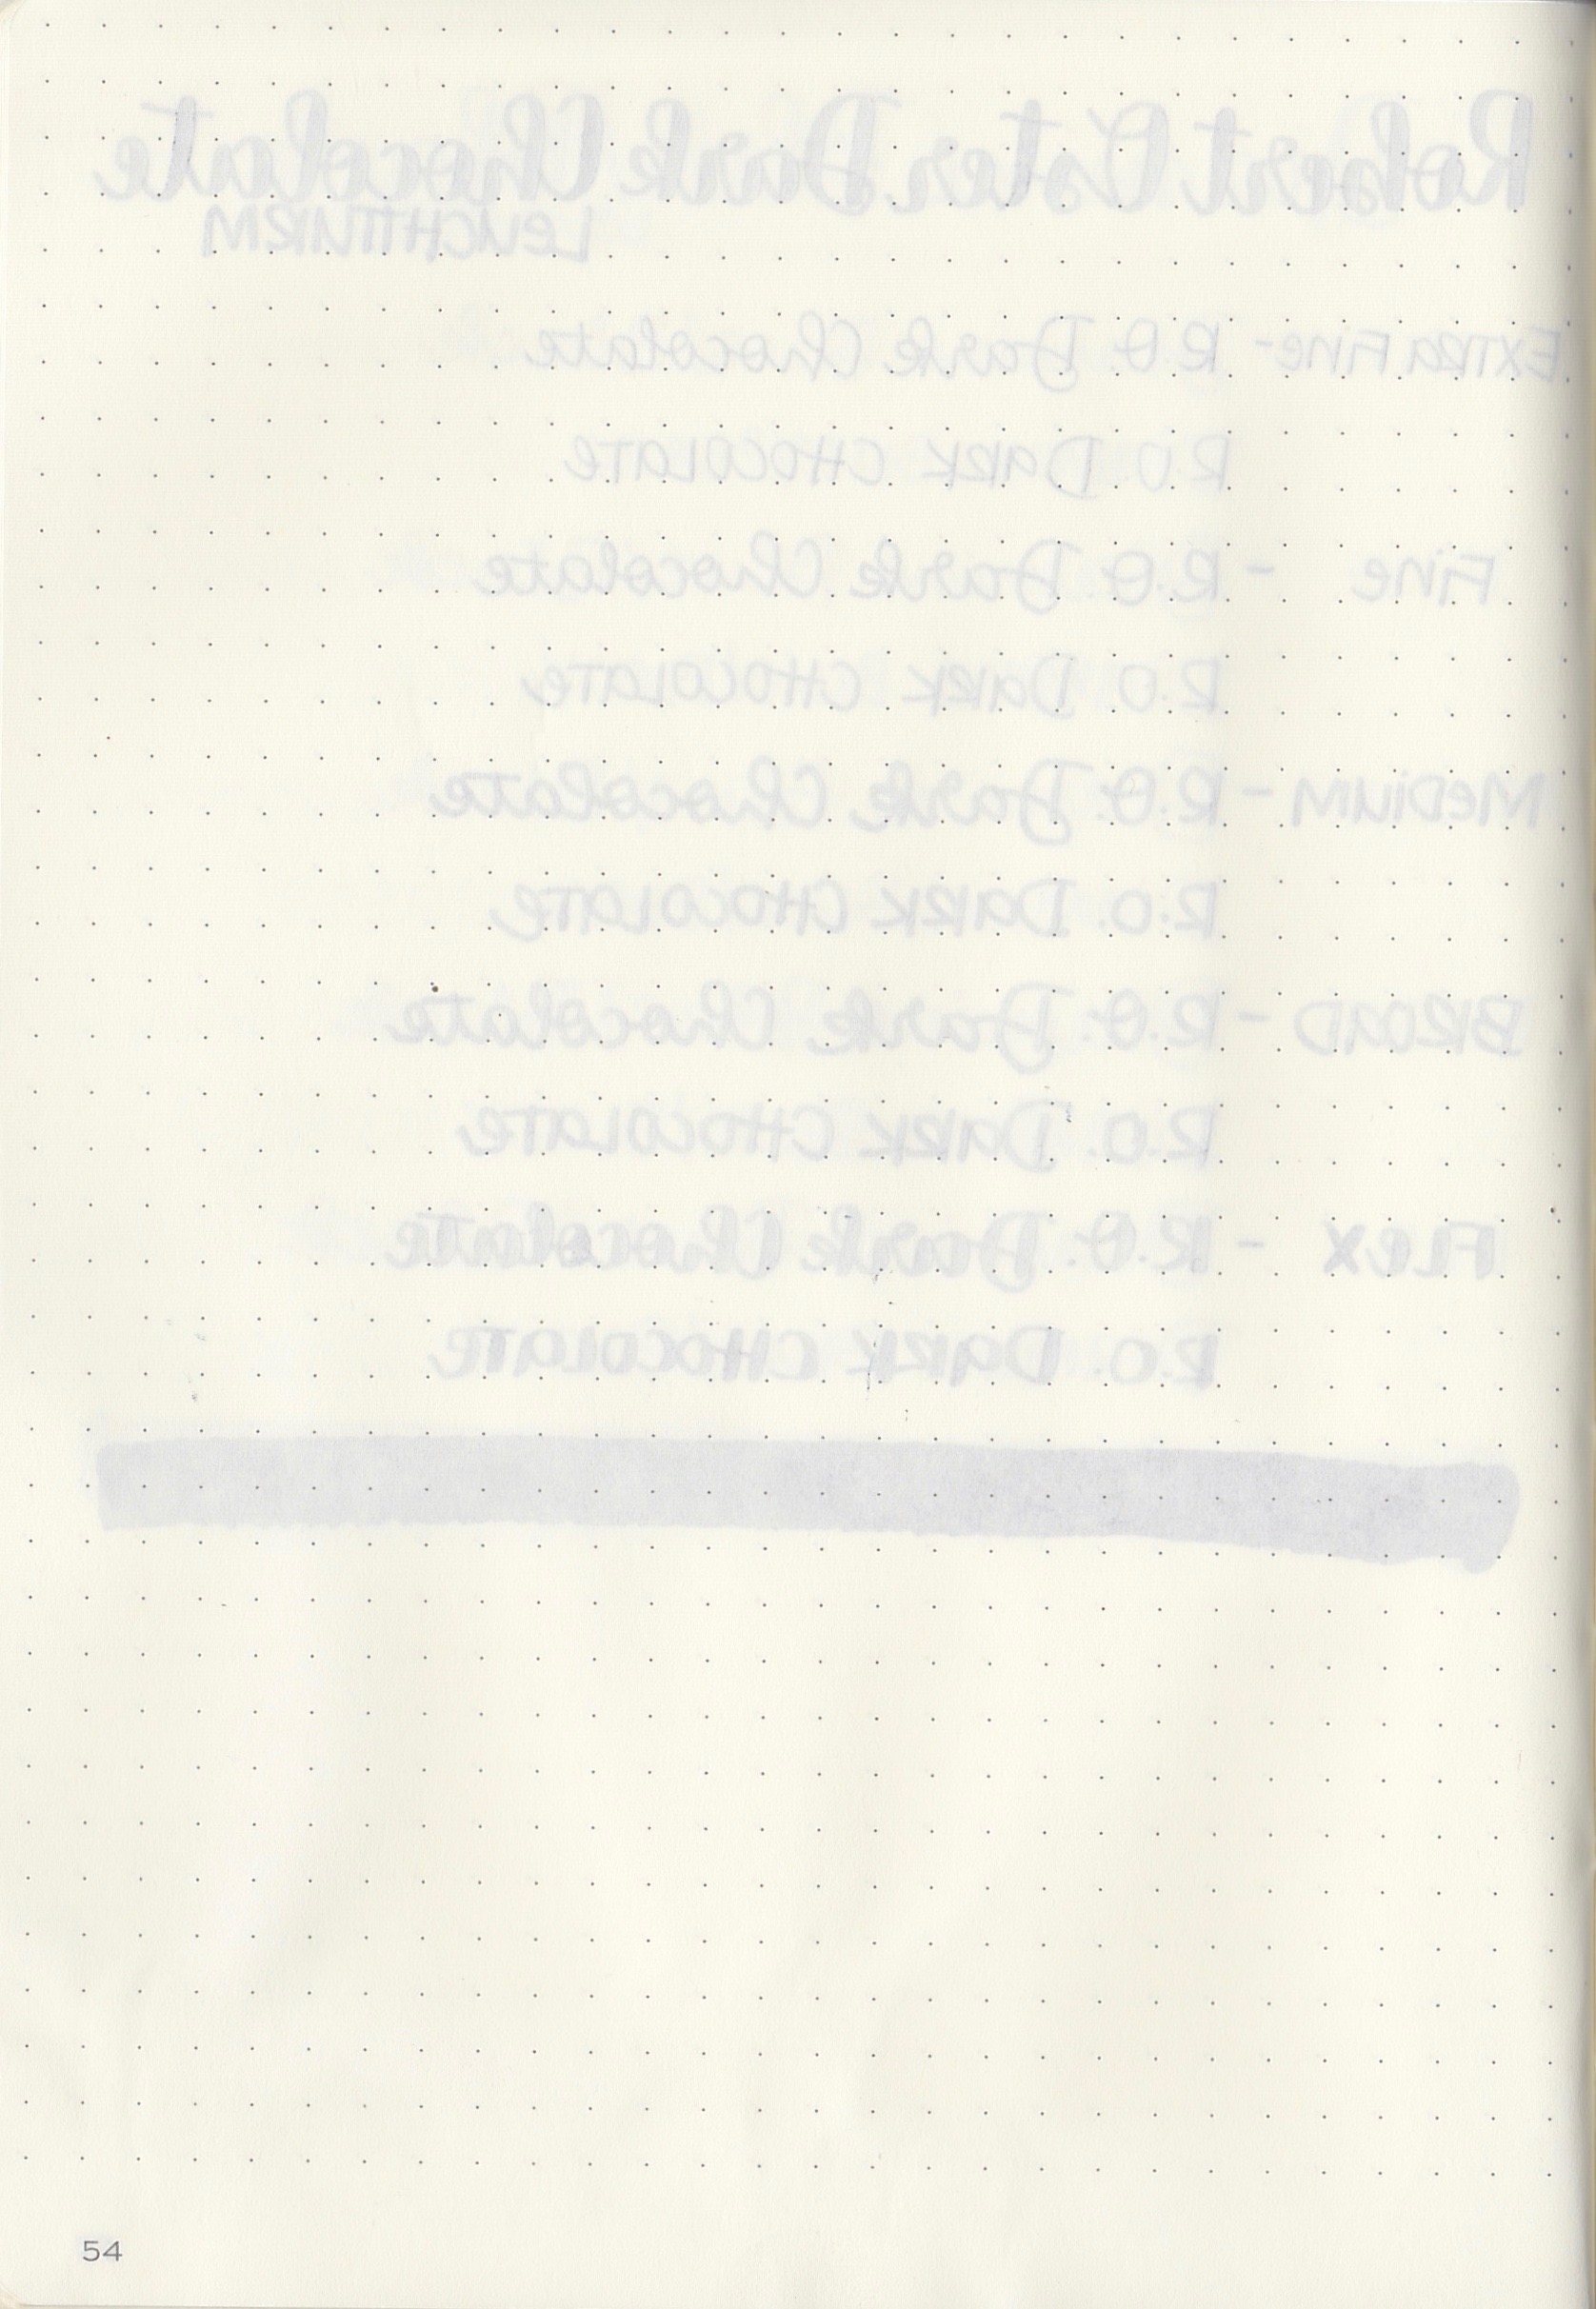 Robert Oster Dark Chocolate
LEUCHTTURM
EXTRA FINE - R.O. Dark Chocolate
R.O. DARK CHOCOLATE
FINE - R.O. Dark Chocolate
R.O. DARK CHOCOLATE
MEDIUM - R.O. Dark Chocolate
R.O. DARK CHOCOLATE
BROAD - R.O. Dark Chocolate
R.O. DARK CHOCOLATE
FLEX - R.O. Dark Chocolate
R.O. DARK CHOCOLATE
54